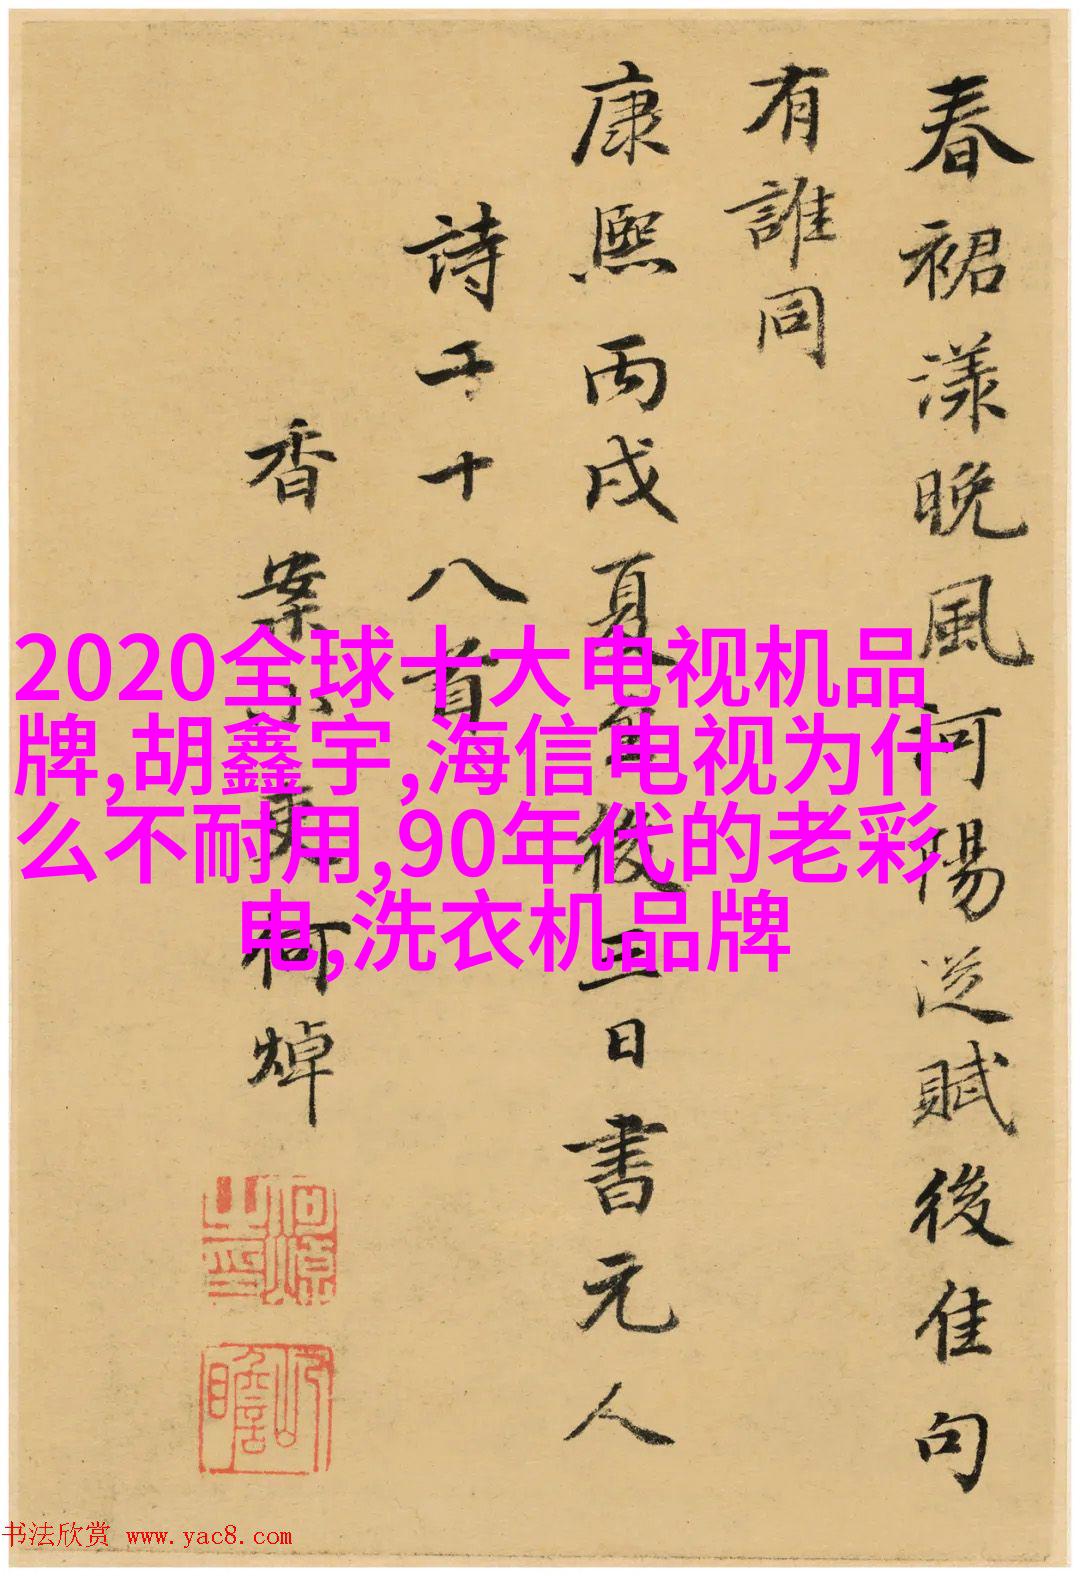 春裙漾晚風河陽從賦後隹句
有誰同
康熙丙戌夏至後三日書元人
詩于十八首
香案小吏何焯
2020全球十大电视机品
牌,胡鑫宇,海信电视为什
么不耐用,90年代的老彩
电,洗衣机品牌
书法欣赏 www.yac8.com